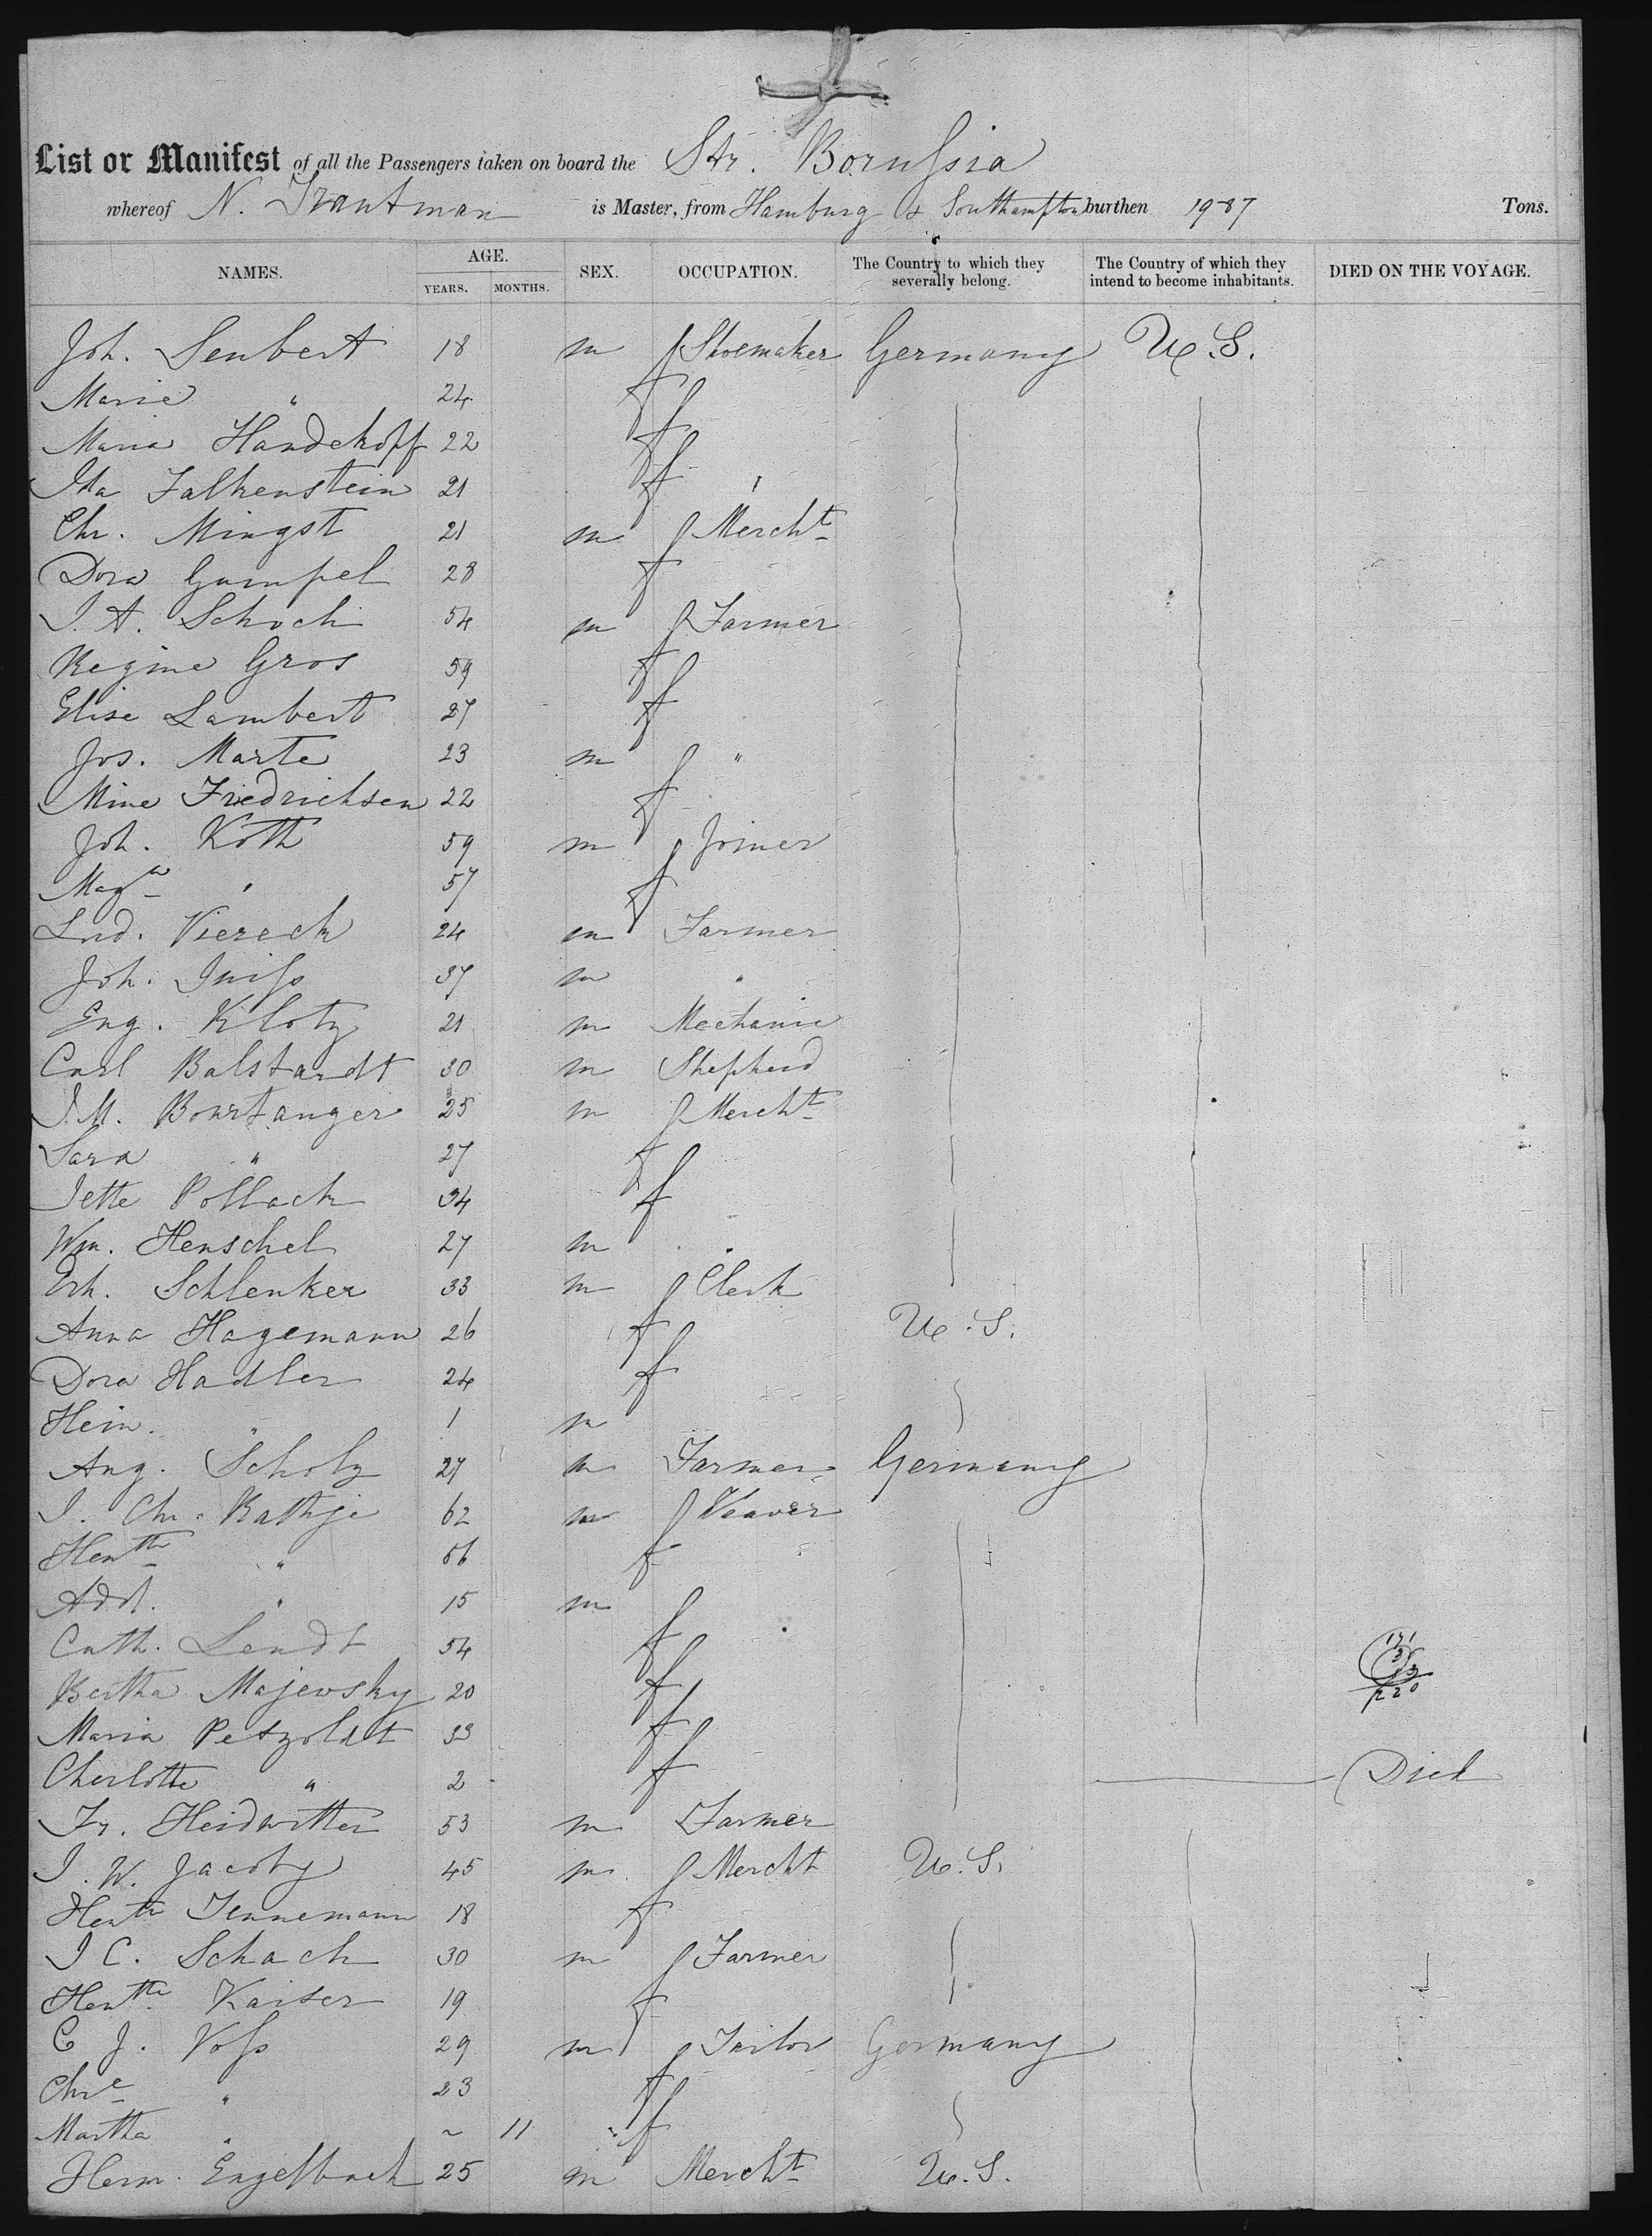 List or Manifest of all the Passengers taken on board the Str. Borussia
whereof N. Trautman is Master, from Hamburg & Southampton burthen 1987 Tons.
NAMES. AGE. SEX. OCCUPATION. The Country to which they severally belong. The Country of which they intend to become inhabitants. DIED ON THE VOYAGE.
YEARS. MONTHS.
Joh. Seubert 18 m Shoemaker Germany U.S.
Marie " 24 f
Maria Handekoff 22 f
Ida Falkenstein 21 f
Chr. Mingst 21 m Mercht
Dora Gumpel 28 f
J. A. Schoch 54 m Farmer
Regine Gros 59 f
Elise Lambert 27 f
Jos. Marte 23 m "
Mine Friedrichsen 22 f
Joh. Koth 59 m Joiner
Maga " 57 f
Lud. Viereck 24 m Farmer
Joh. 37 m "
Eug. Klotz 21 m Mechanic
Carl Balstardt 30 m Shepherd
J. M. Bourtanger 25 m Mercht
Sara " 27 f
Jette Pollack 34 f
Wm. Henschel 27 m "
Erh. Schlenker 33 m Clerk
Anna Hagemann 26 f U.S.
Dora Hadler 24 f
Hein. " 1 m
Aug. Scholz 27 m Farmer Germany
J. Chr. Rathje 62 m Weaver
Hentte " 56 f
Adol. " 15 m
Cath. Lendt 54 f
Bertha Majewsky 20 f
Maria Petzoldt 33 f
Charlotte " 2 f Died
Fr. Heidwitter 53 m Farmer
J. W. Jacoby 45 m Mercht U.S.
Hentte Tennemann 18 f
J C. Schach 30 m Farmer
Hentte Kaiser 19 f
C J. Voss 29 m Tailor Germany
Chre " 23 f
Martha " ~ 11 f
Herm. Engelbach 25 m Mercht U.S.